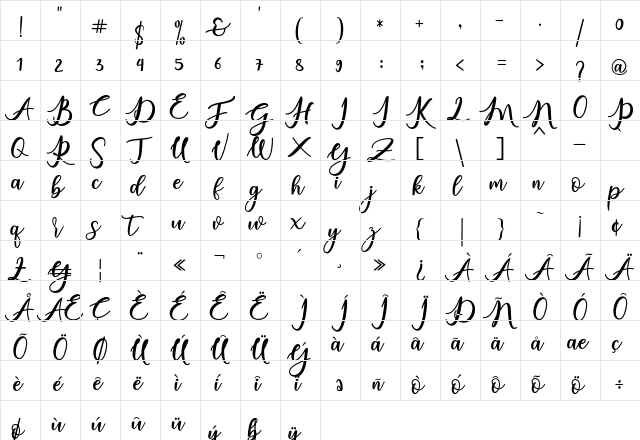 ! " # $ % & ' ( ) * + , - . / 0
1 2 3 4 5 6 7 8 9 : ; < = > ? @
A B C D E F G H I J K L M N O P
Q R S T U V W X Y Z [ \ ] ^ _
a b c d e f g h i j k l m n o p
q r s t u v w x y z { | } ~ ¡ ¢
£ ¥ ¦ ¨ « ¬ ° ´ ¸ » ¿ À Á Â Ã Ä
Å Æ Ç È É Ê Ë Ì Í Î Ï Ð Ñ Ò Ó Ô
Õ Ö Ø Ù Ú Û Ü Ý à á â ã ä å æ ç
è é ê ë ì í î ï ñ ò ó ô õ ö ÷
ø ù ú û ü ý ÿ